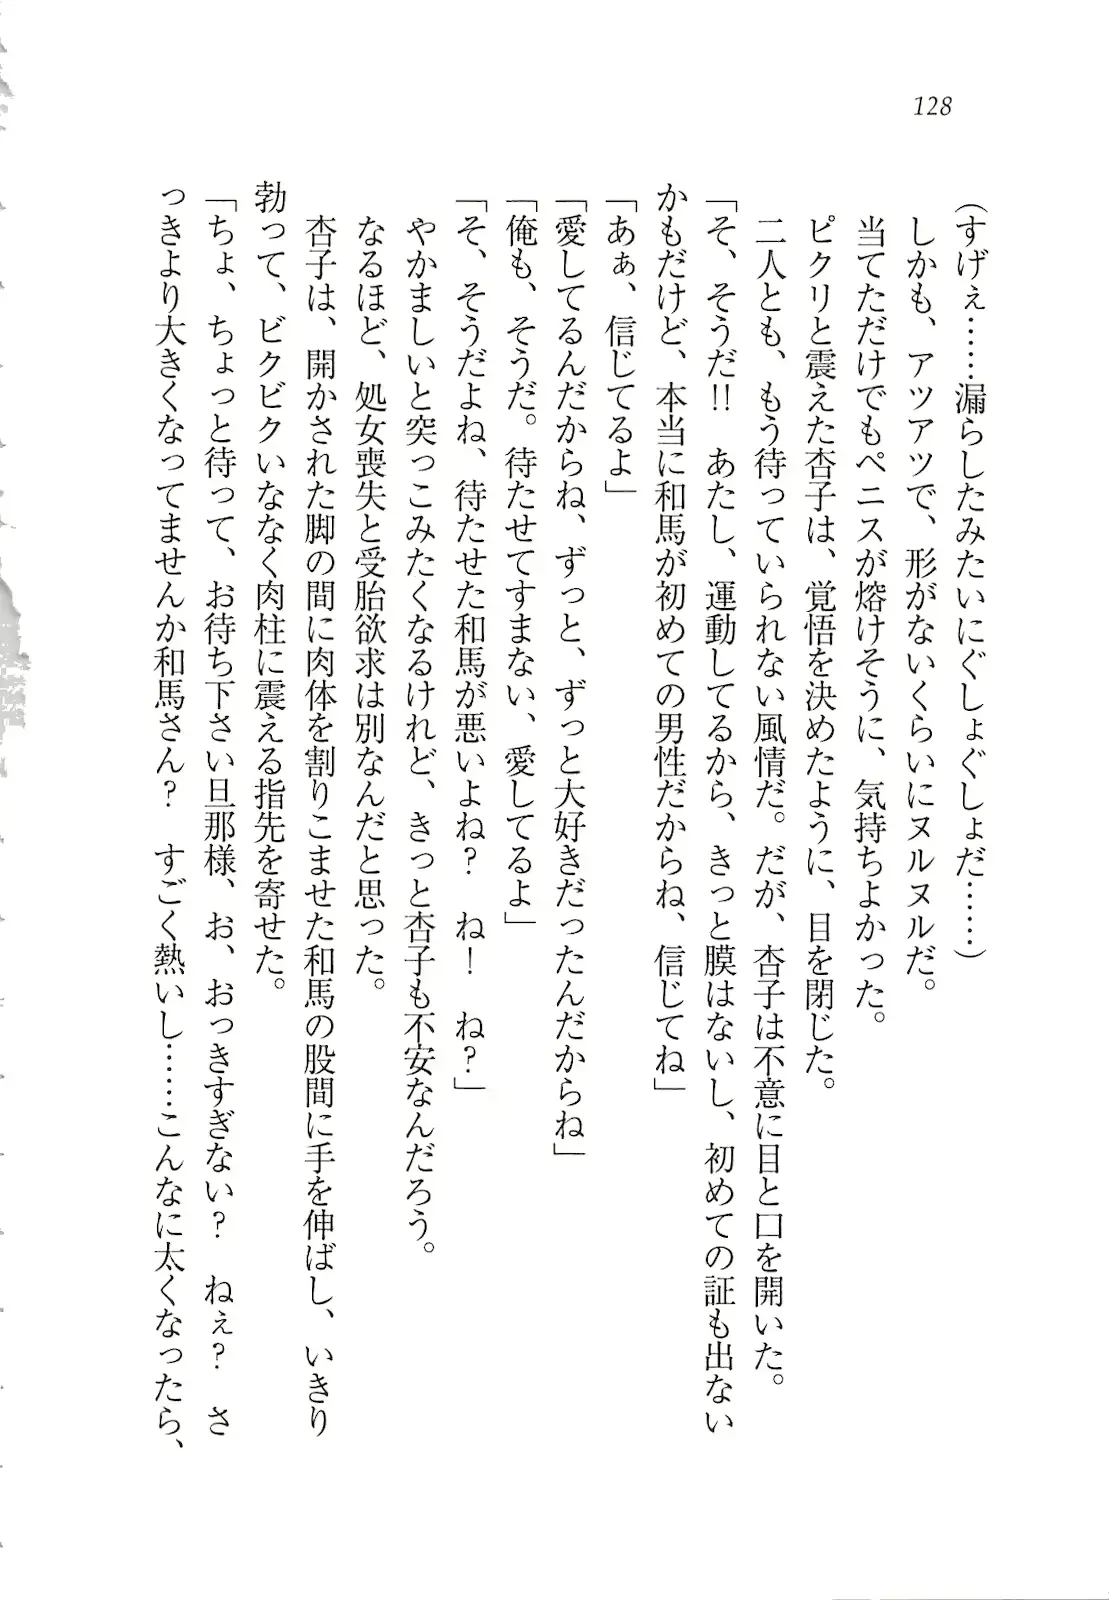 128
(すげぇ……漏らしたみたいにぐしょぐしょだ……)
しかも、アツアツで、形がないくらいにヌルヌルだ。
当てただけでもペニスが熔けそうに、気持ちよかった。
ピクリと震えた杏子は、覚悟を決めたように、目を閉じた。
二人とも、もう待っていられない風情だ。だが、杏子は不意に目と口を開いた。
「そ、そうだ!! あたし、運動してるから、きっと膜はないし、初めての証も出ない
かもだけど、本当に和馬が初めての男性だからね、信じてね」
「あぁ、信じてるよ」
「愛してるんだからね、ずっと、ずっと大好きだったんだからね」
「俺も、そうだ。待たせてすまない、愛してるよ」
「そ、そうだよね、待たせた和馬が悪いよね? ね! ね?」
やかましいと突っこみたくなるけれど、きっと杏子も不安なんだろう。
なるほど、処女喪失と受胎欲求は別なんだと思った。
杏子は、開かされた脚の間に肉体を割りこませた和馬の股間に手を伸ばし、いきり
勃って、ビクビクいななく肉柱に震える指先を寄せた。
「ちょ、ちょっと待って、お待ち下さい旦那様、お、おっきすぎない? ねぇ? さ
っきより大きくなってませんか和馬さん? すごく熱いし……こんなに太くなったら、